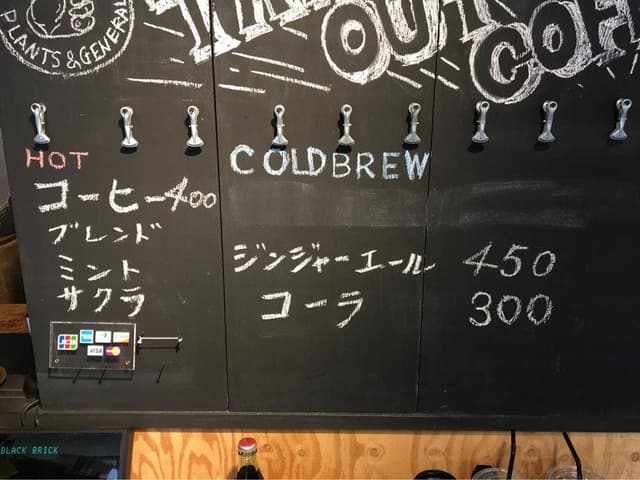 PLANTS & GENERAL
OUT
COF
HOT
コーヒー400
ブレンド
ミント
サクラ
COLDBREW
ジンジャーエール 450
コーラ 300
JCB
VISA
BLACK BRICK